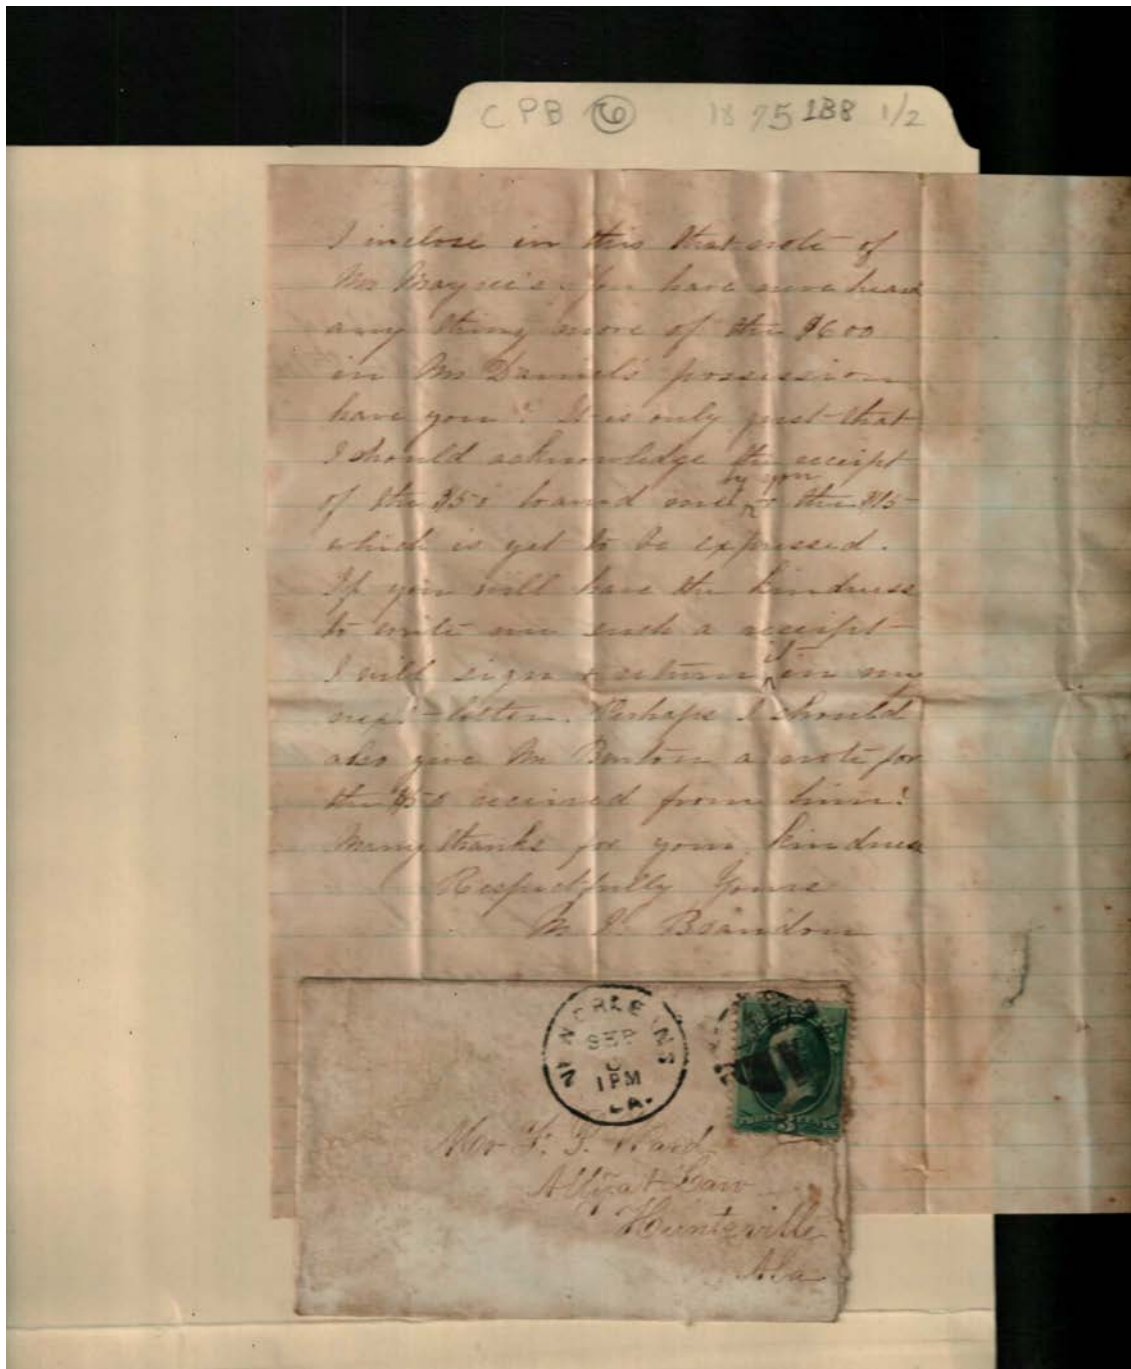 CPB 6 1875 1BB 1/2
I inclose in this that note of
Mr you have never heard
any thing more of the $600
in Mr Daniel's possession
have you? It is only just that
I should acknowledge the receipt
by you
of the $50 loand me & the $15
which is yet to be expressed.
If you will have the kindness
to write me such a receipt
it
I will sign & return in my
next letter. Perhaps I should
also give Mr Benton a note for
the $50 received from him?
Many thanks for your kindness
Respectfully Yours
M. Brandon
NEW ORLEANS
SEP
1 PM
LA.
Mr Ward
Atty at Law
Huntsville
Ala